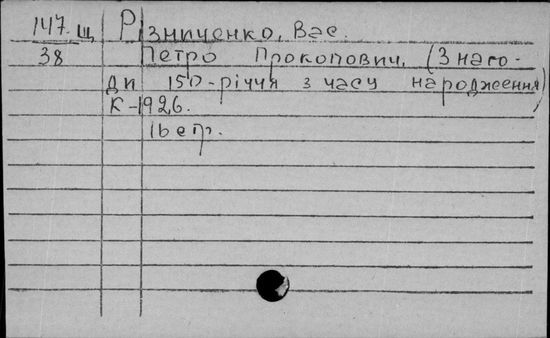 147.щ Різниченко, Вас.
38 Петро Прокопович. (З наго-
ди 150-річчя з часу народження)
К-1926.
16 ст.